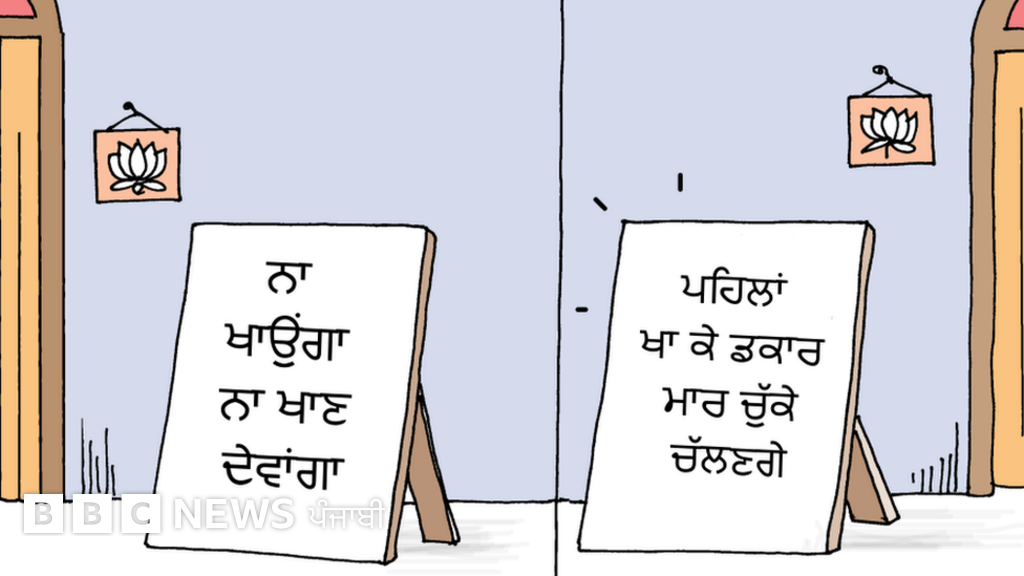 ਨਾ
ਖਾਉਂਗਾ
ਨਾ ਖਾਣ
ਦੇਵਾਂਗਾ
ਪਹਿਲਾਂ
ਖਾ ਕੇ ਡਕਾਰ
ਮਾਰ ਚੁੱਕੇ
ਚੱਲਣਗੇ
BBC NEWS ਪੰਜਾਬੀ